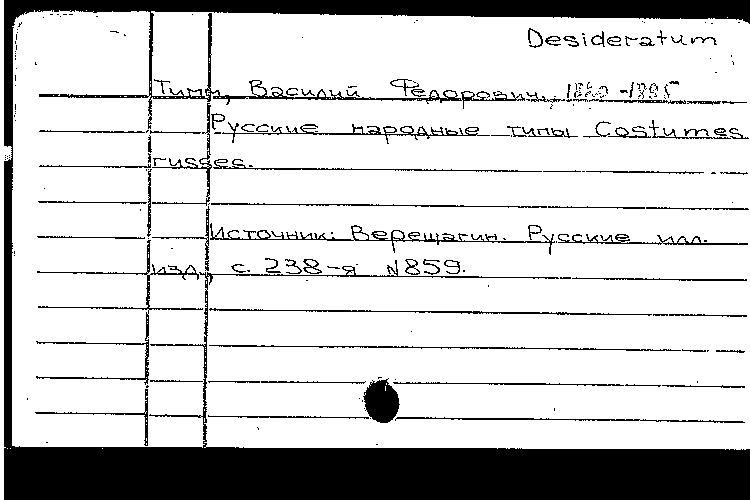 Desideratum
Тимм, Василий Федорович, 1820-1895
Русские народные типы Costumes
russes.
Источник: Верещагин. Русские илл.
изд., с. 238-я N859.